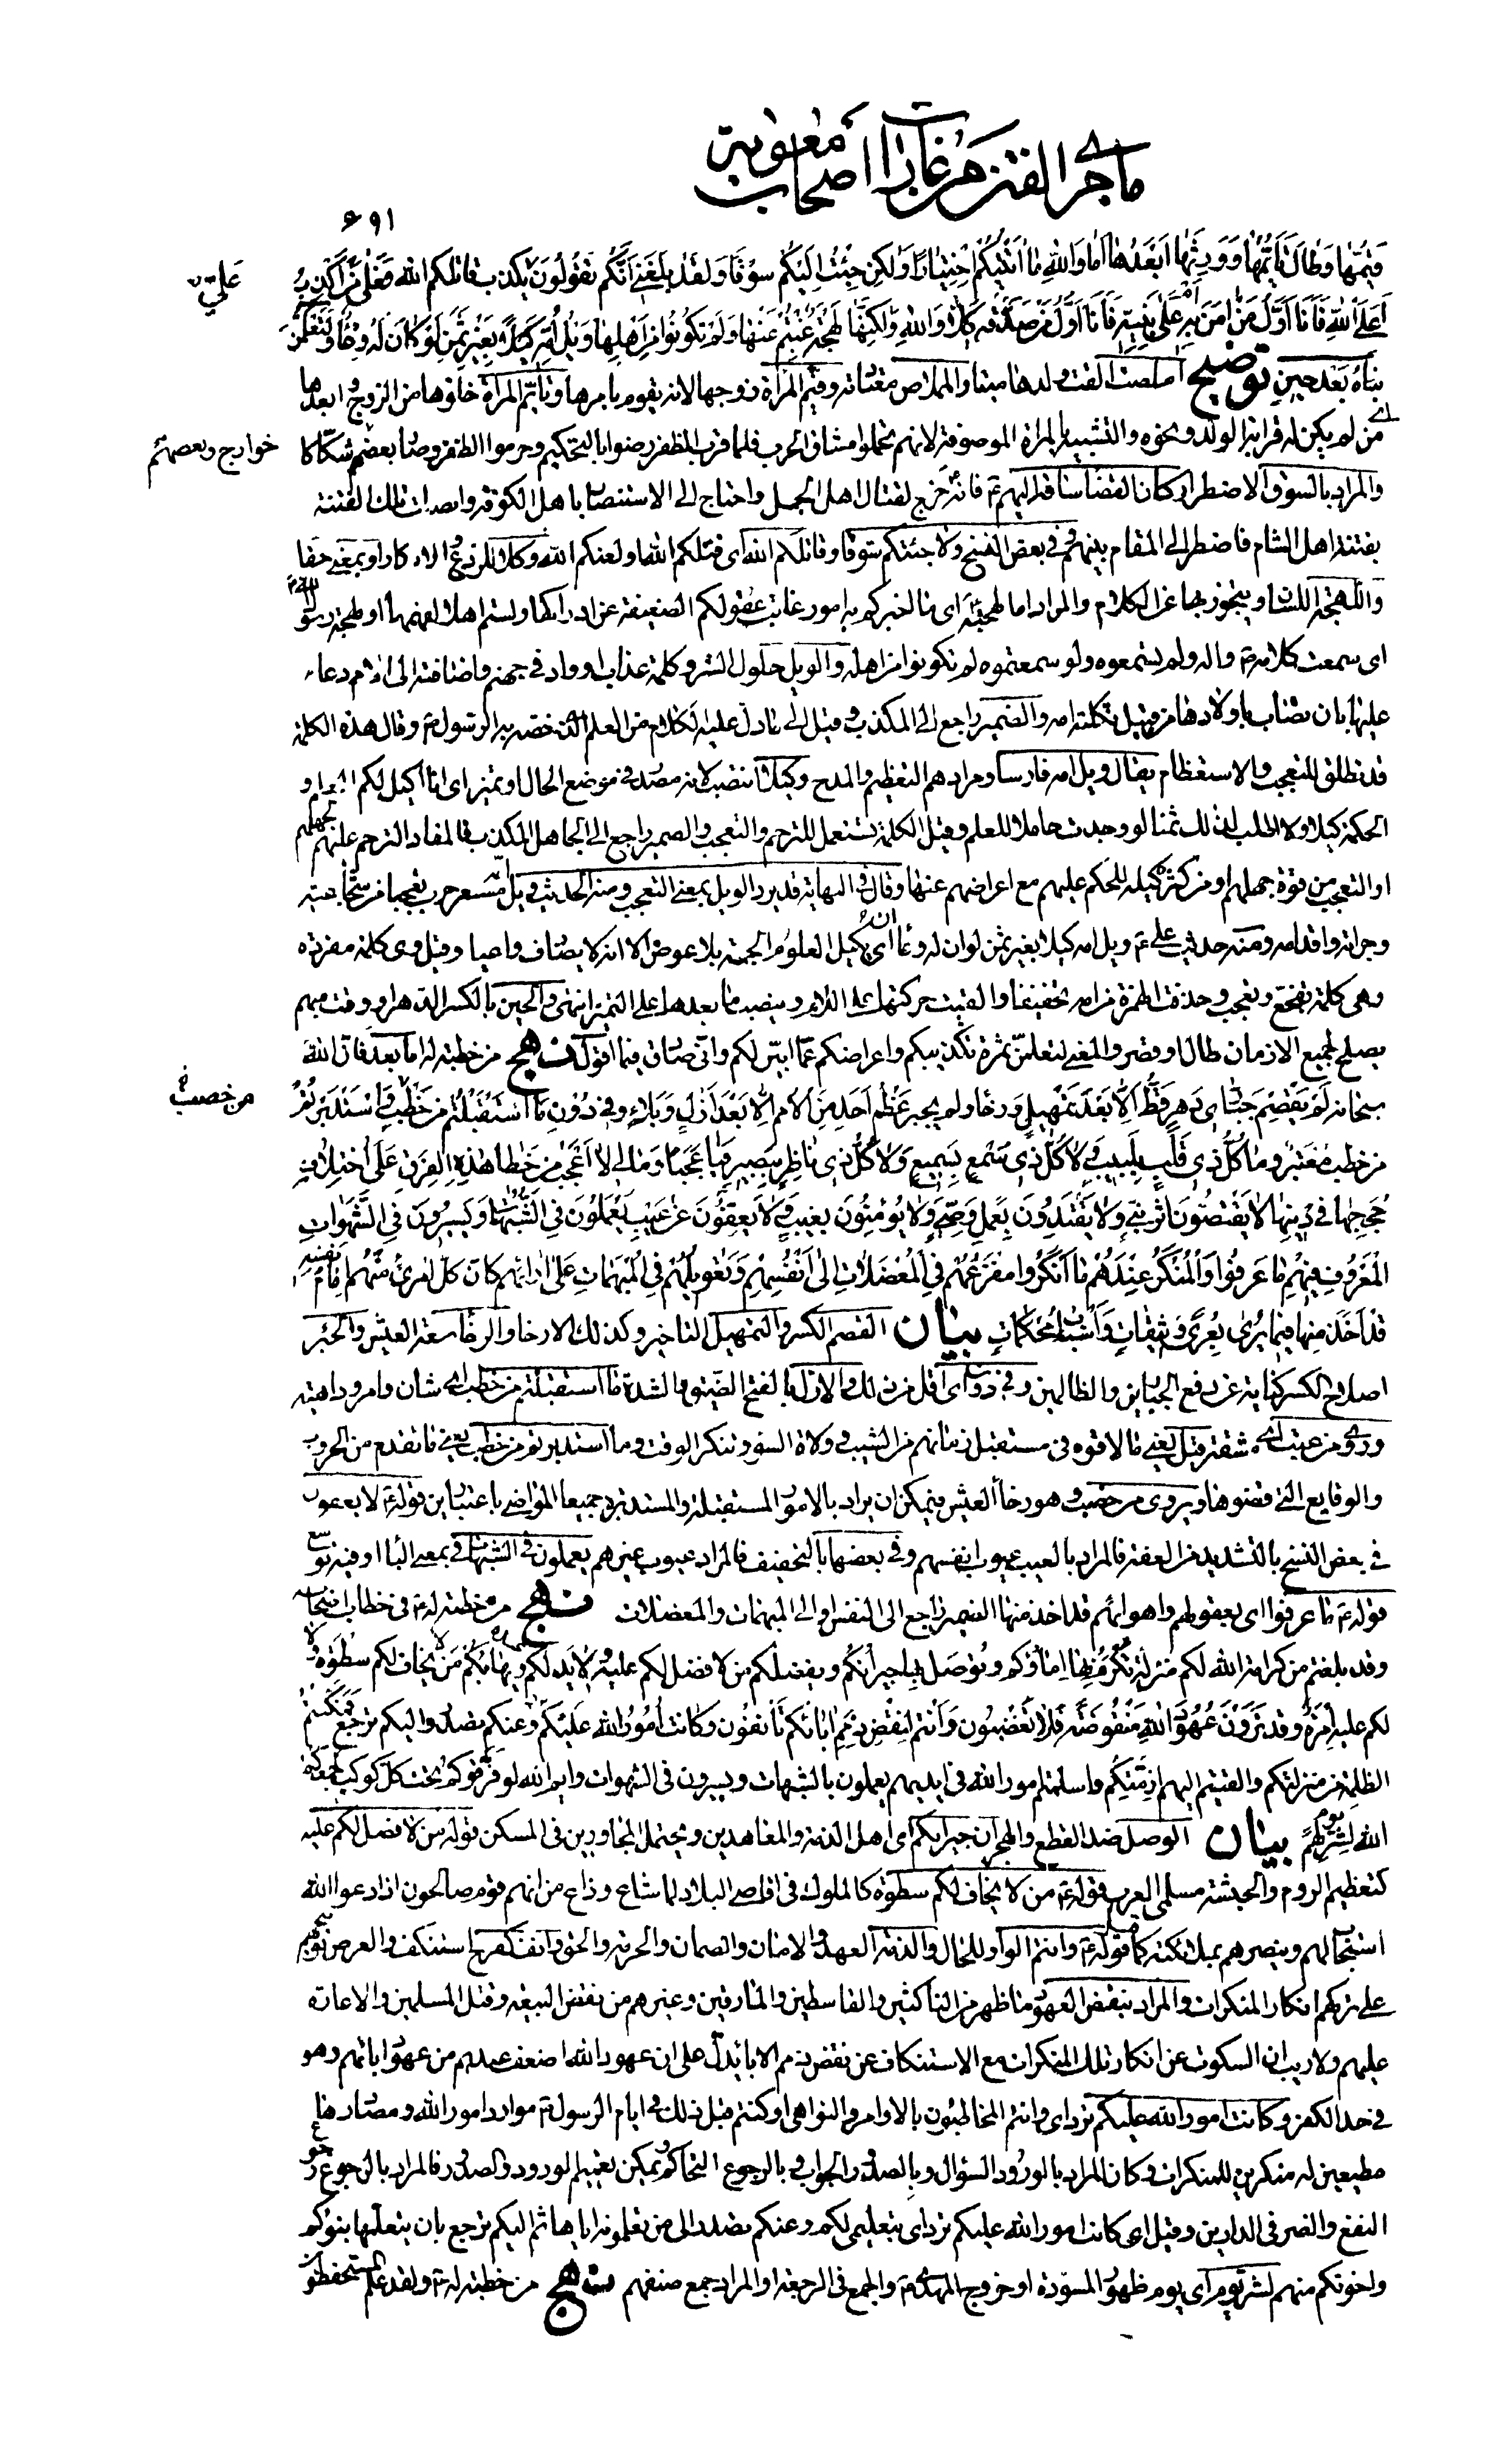 ما جرى من الفتن من غارات اصحاب معوية
٦٩١
قيمها وطال تأيمها وورثها ابعدها اما والله ما اتيتكم اختيارا ولكن جئت اليكم سوقا ولقد بلغني انكم تقولون يكذب قاتلكم الله فعلى من اكذب
علي ن
أعلى الله فأنا أول من امن به أم على نبيه فأنا أول من صدقه كلا والله ولكنها لهجة غبتم عنها ولم تكونوا من اهلها ويل أمه كيلا بغير ثمن لو كان له وعاء ولتعلمن
نبأه بعد حين توضيح املصت القت ولدها ميتا والمملاص معتادته وقيم المرأة زوجها لانه يقوم بامرها وتايم المرأة خلوها من الزوج وابعدها
اى من لم يكن له قرابة الولد ونحوه والتشبيه بالمراة الموصوفة لانهم تحملوا مشاق الحرب فلما قرب الظفر رضوا بالتحكيم وحرموا الظفر وصار بعضهم شكاكا
خوارج وبعضهم
والمراد بالسوق الاضطرار كان القضاء ساقه اليهم فانه ع خرج لقتال اهل الجمل واحتاج الى الاستنصار باهل الكوفة واتصلت تلك الفتنة
بفتنة اهل الشام فاضطر الى المقام بينهم وفي بعض النسخ ولا جئتكم شوقا وقاتلكم الله اى قتلكم الله او لعنكم الله وكلا للردع والانكار او بمعنى حقا
واللهجة اللسان ويتجوز بها عن الكلام والمراد اما لهجته ع اى ما اخبركم به امور غابت عقولكم الضعيفة عن ادراكها ولستم اهلا لفهمها او لهجة رسول الله ص
اى سمعت كلامه ص واله ولم تسمعوه ولو سمعتموه لم تكونوا من اهله والويل حلول الشر وكلمة عذاب او واد فى جهنم واضافته الى الام دعاء
عليها بان تصاب باولادها من قبيل ثكلته امه والضمير راجع الى المكذب وقيل الى ما دل عليه الكلام من العلم الذى خصه به الرسول ص وقال هذه الكلمة
قد تطلق للتعجب والاستعظام يقال ويل امه فارسا ومرادهم التعظيم والمدح وكيلا انتصب لانه مصدر في موضع الحال او تميز اى انا اكيل لكم العلم و
الحكمة كيلا ولا اطلب لذلك ثمنا لو وجدت حاملا للعلم وقيل الكلمة تستعمل للترحم والتعجب والضمير راجع الى الجاهل المكذب فالمفاد الترحم عليهم لجهلهم
او التعجب من قوة جهلهم او من كثرة كيله للحكم عليهم مع اعراضهم عنها وقال فى النهاية قد يرد الويل بمعنى التعجب ومنه الحديث ويل امه مسعر حرب تعجبا من شجاعته
وجرأته واقدامه ومنه حديث علي ع ويل امه كيلا بغير ثمن لو ان له وعا اى انه يكيل العلوم الجمة بلا عوض الا انه لا يصادف واعيا وقيل وى كلمة مفردة
وهى كلمة تفجع وتعجب وحذفت الهمزة من امه تخفيفا والقيت حركتها على اللام وينصب ما بعدها على التميز انتهى والحين بالكسر الدهر او وقت مبهم
يصلح لجميع الازمان طال او قصر والمعنى لتعلمن ثمرة تكذيبكم واعراضكم عما ابين لكم وانى صادق فيما اقول نهج من خطبة له اما بعد فان الله
سبحانه لم يقصم جبارى دهر قط الا بعد تمهيل ورخاء ولم يجبر عظم احد من الامم الا بعد ازل وبلاء وفى دون ما استقبلتم من خطب واستدبرتم
من خصب خ
من خطب معتبر وما كل ذى قلب بلبيب ولا كل ذى سمع بسميع ولا كل ذى ناظر ببصير فيا عجبا وما لى لا اعجب من خطأ هذه الفرق على اختلاف
حججها فى دينها لا يقتصون اثر نبي ولا يقتدون بعمل وصي ولا يؤمنون بغيب ولا يعفون عن عيب يعملون فى الشبهات ويسيرون فى الشهوات
المعروف فيهم ما عرفوا والمنكر عندهم ما انكروا مفزعهم فى المعضلات الى انفسهم وتعويلهم فى المبهمات على ارائهم كان كل امرئ منهم امام نفسه
قد اخذ منها فيما يرى بعرى وثيقات واسباب محكمات بيان القصم الكسر والتمهيل التاخير وكذلك الارخاء والرخاء سعة العيش والجبر
اصلاح الكسر كناية عن دفع الجبارين والظالمين وفي دون اى اقل من ذلك والازل بالفتح الضيق والشدة ما استقبلتم من خطب اى شان وامر وداهية
وروى من عتب اى شقة قيل يعنى ما لاقوه فى مستقبل زمانهم من الشيب وولاة السوء وتنكر الوقت وما استدبرتم من خطب يعنى ما تقدم من الحروب
والوقايع التى قضوها ويروى من خصب وهو رخاء العيش ويمكن ان يراد بالامور المستقبلة والمستدبرة جميعا الماضى باعتبارين قوله ع لا يعفون
فى بعض النسخ بالتشديد من العفة فالمراد بالعيب عيوب انفسهم وفى بعضها بالتخفيف فالمراد عيوب غيرهم يعملون فى الشبهات فى بمعنى الباء او فيه توسع
قوله ع ما عرفوا اى بعقولهم واهوائهم قد اخذ منها الضمير راجع الى النفس او الى المبهمات والمعضلات نهج من خطبة له ع فى خطاب اصحابه
وقد بلغتم من كرامة الله لكم منزلة تكرم بها اماؤكم وتوصل بها جيرانكم ويعظمكم من لا فضل لكم عليه ولا يد لكم عنده ويهابكم من لا يخاف لكم سطوة ولا
لكم عليه امرة وقد ترون عهود الله منقوضة فلا تغضبون وانتم لنقض ذمم ابائكم تأنفون وكانت امور الله عليكم ترد وعنكم تصدر واليكم ترجع فمكنتم
الظلمة من منزلتكم والقيتم اليهم ازمتكم واسلمتم امور الله فى ايديهم يعملون بالشبهات ويسيرون فى الشهوات وايم الله لو فرقوكم تحت كل كوكب لجمعكم
الله لشر يوم لهم بيان الوصل ضد القطع والهجران جيرانكم اى اهل الذمة والمعاهدين ويحتمل المجاورين فى المسكن قوله من لا فضل لكم عليه
كتعظيم الروم والحبشة مسلمى العرب قوله ع من لا يخاف لكم سطوة كالملوك فى اقاصى البلاد لما شاع وذاع من انهم قوم صالحون اذا دعوا الله
استجاب لهم وينصرهم بملائكته كما قوله ع وانتم الواو للحال والذمة العهد والامان والضمان والحرمة والحق وانف كفرح استنكف والغرض توبيخهم
على تركهم انكار المنكرات والمراد بنقض العهود ما ظهر من الناكثين والقاسطين والمارقين وغيرهم من نقض البيعة وقتل المسلمين والاغارة
عليهم ولا ريب ان السكوت عن انكار تلك المنكرات مع الاستنكاف عن نقض ذمم الاباء يدل على ان عهود الله اضعف عندهم من عهود ابائهم وهو
فى حد الكفر وكانت امور الله عليكم ترد اى وانتم المخاطبون بالاوامر والنواهى او كنتم قبل ذلك فى ايام الرسول ص موارد امور الله ومصادرها
مطيعين له منكرين للمنكرات وكان المراد بالورود السؤال وبالصدور الجواب وبالرجوع التحاكم ويمكن تعميم الورود والصدور فالمراد بالرجوع رجوع
النفع والضر فى الدارين وقيل اى كانت امور الله عليكم ترد اى بتعليمى لكم وعنكم تصدر الى من تعلمونه اياها ثم اليكم ترجع بان يتعلمها بنوكم
واخوتكم منهم لشر يوم اى يوم ظهور المسودة او خروج المهدى ع والجمع فى الرجعة او المراد جمع صنفهم نهج من خطبة له ع ولقد علم المستحفظون